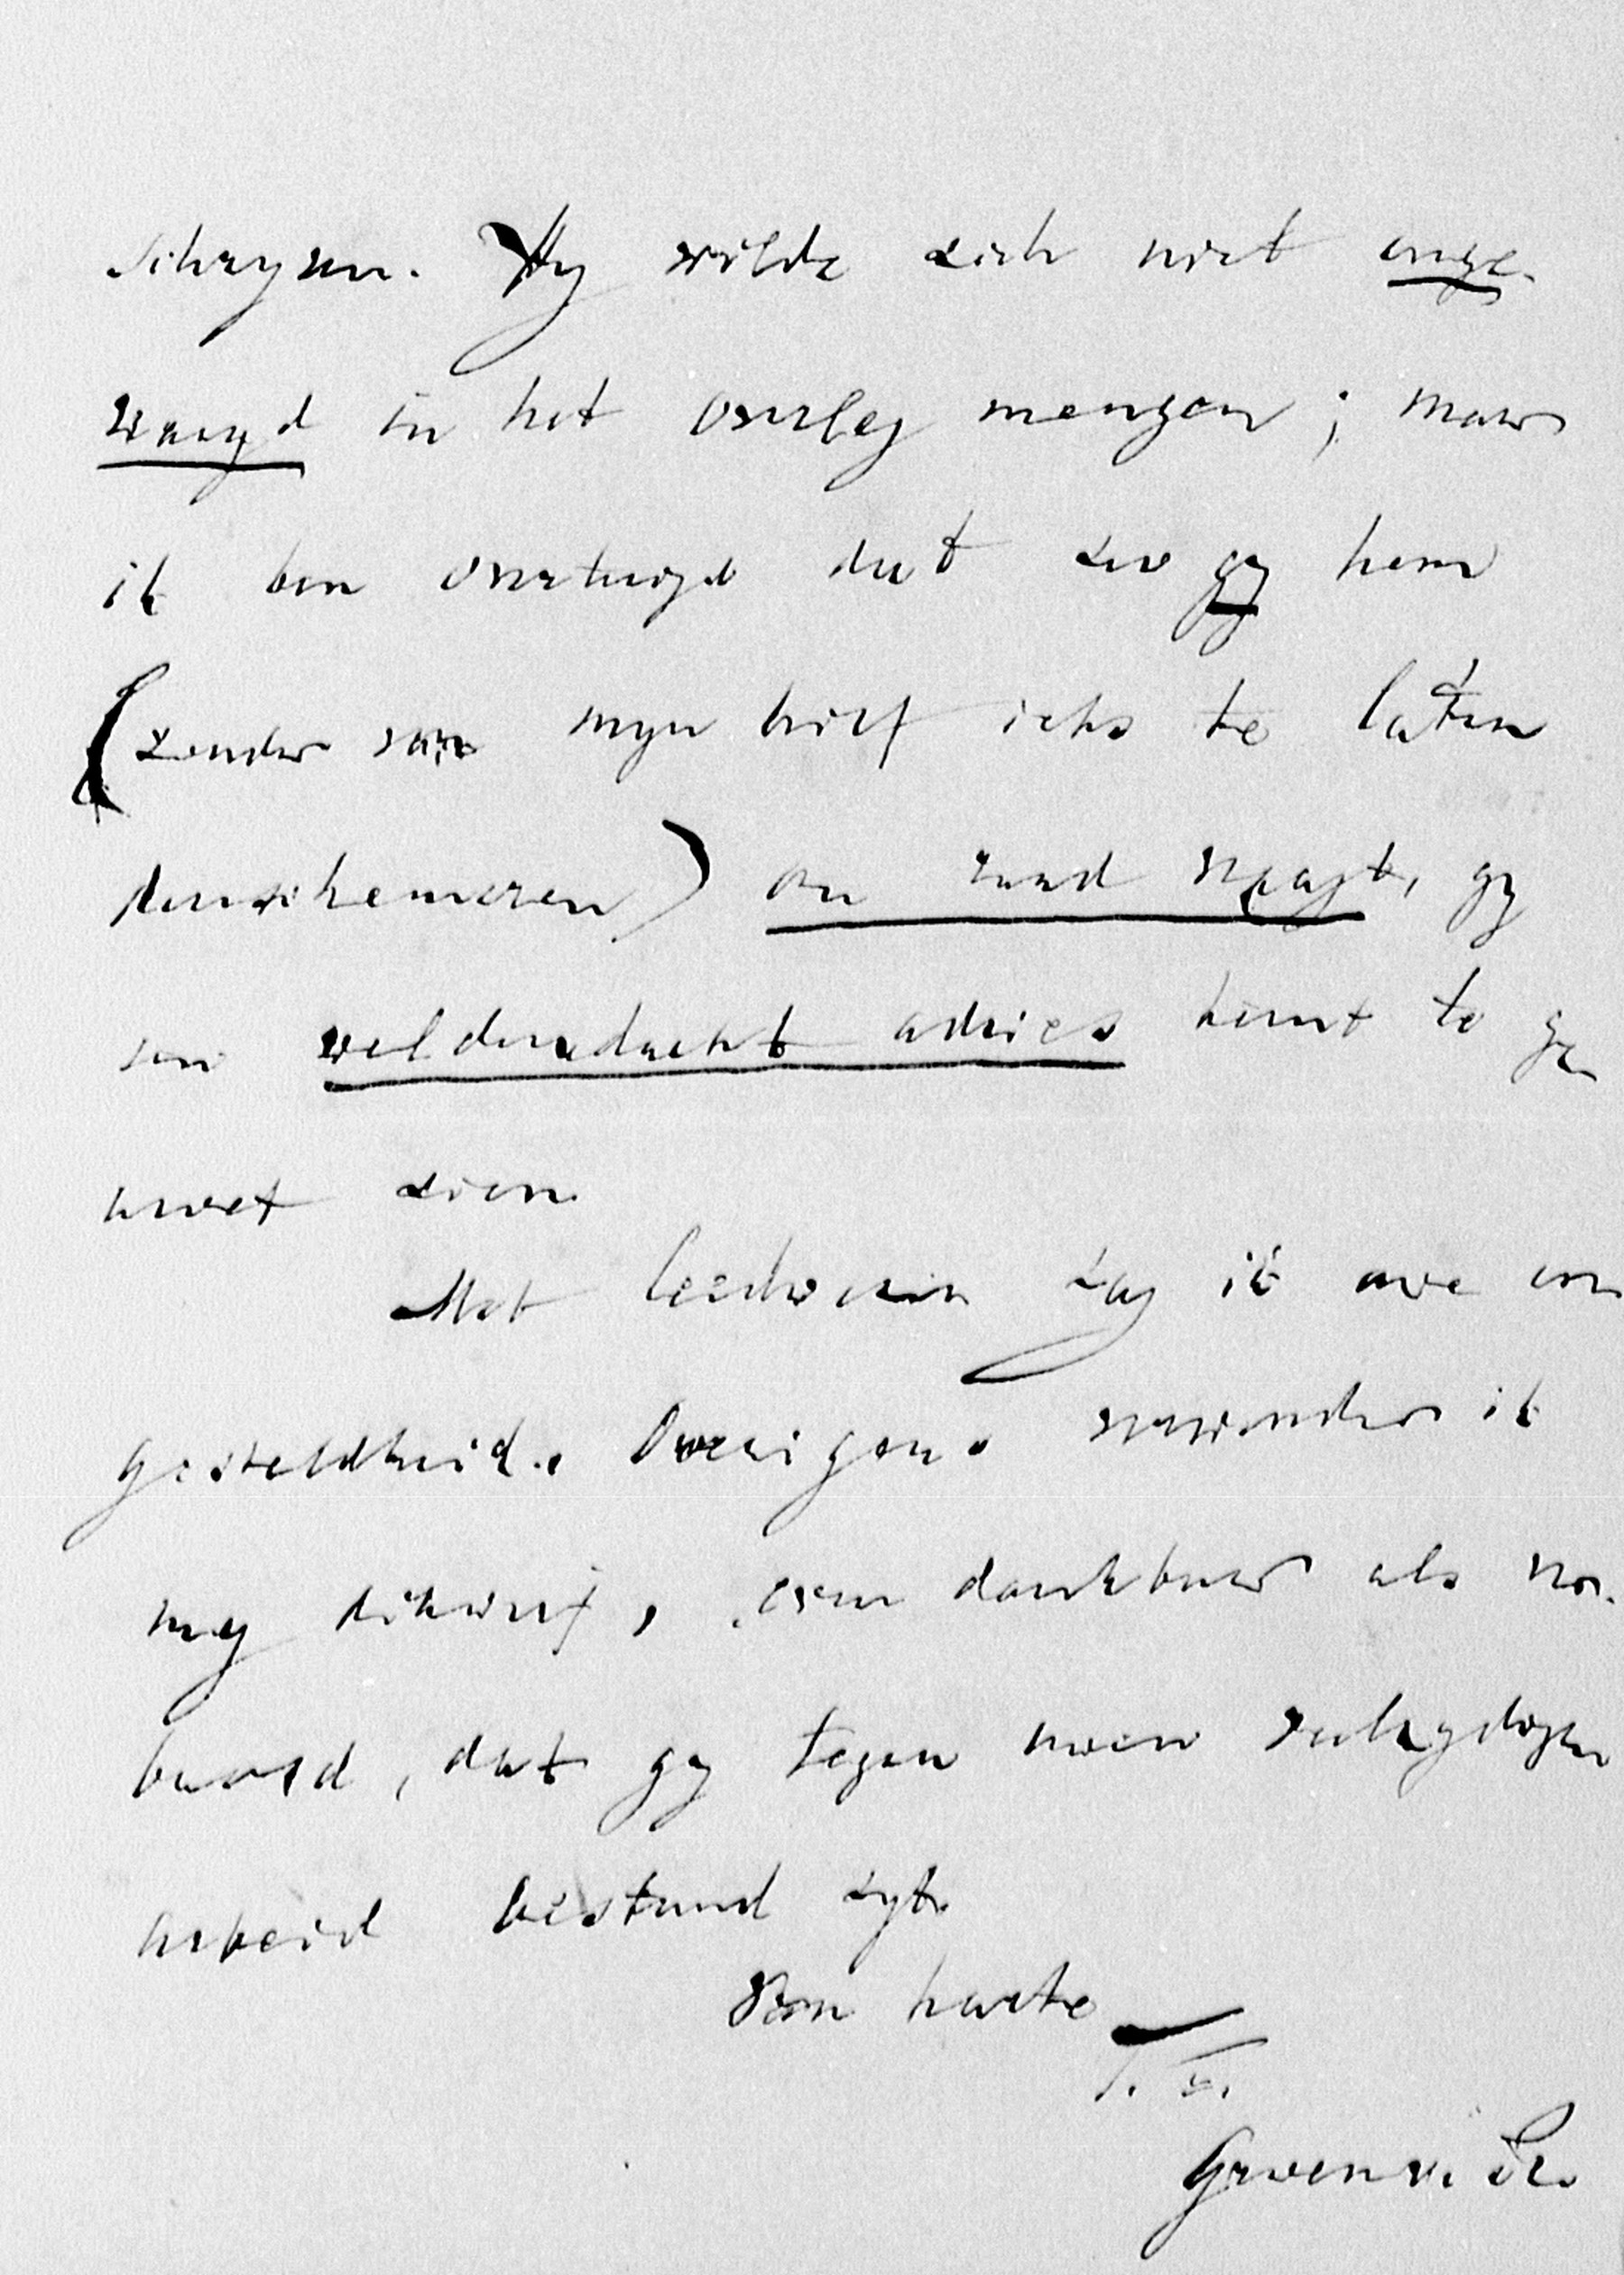 schryven. Hy wilde zich niet onge-
vraagd in het overleg mengen; maar
ik ben overtuigd dat zoo gy hem
(zonder van myn brief iets te laten
doorschemeren) om raad vraagt, gy
een weldoordacht advies kunt te ge
moet zien.
Met leedwezen zag ik uwe on
gesteldheid. Overigens verwonder ik
my dikwerf, even dankbaar als ver-
baasd, dat gy tegen uwen veelzydigen
arbeid bestand zyt.
Van harte
T. a.
Groen v. Pr.